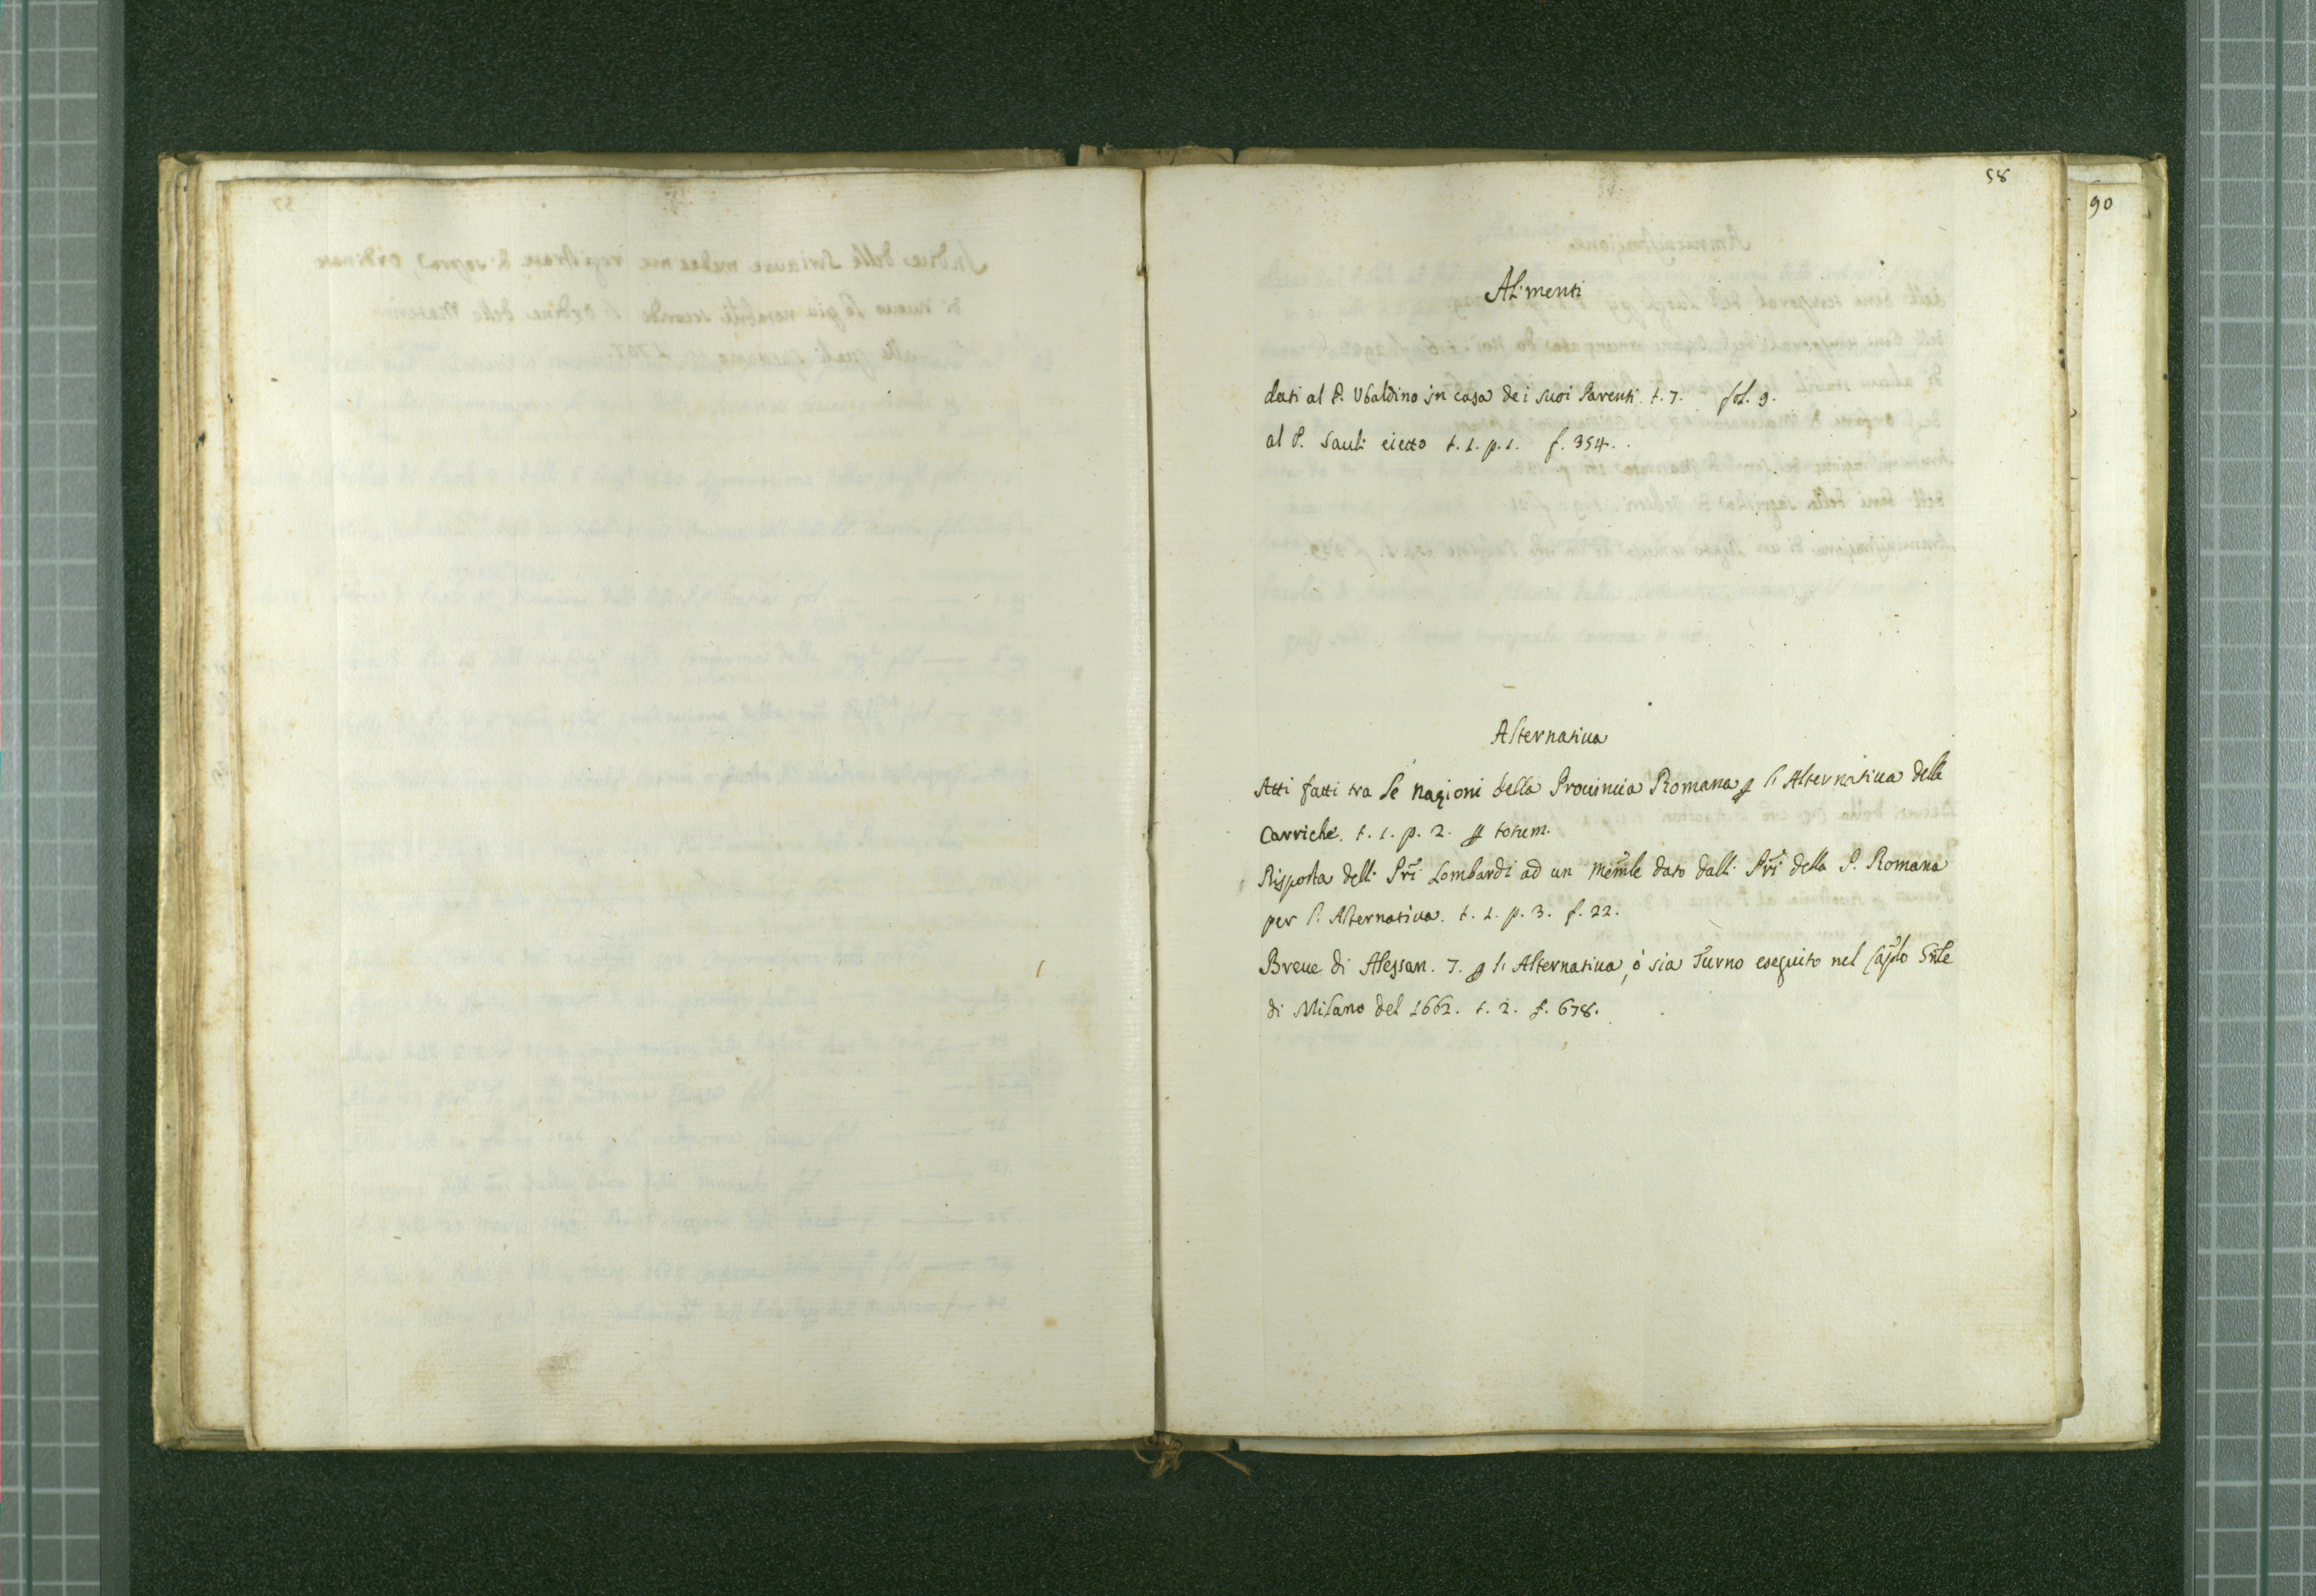 58
90
Alimenti
dati al P. Ubaldino in casa dei suoi Parenti. t. 7. fol. 9.
al P. Sauli eietto t. 1. p. 1. f. 354.
Alternatiua
Atti fatti tra le nazioni della Prouincia Romana ꝑ l'Alternatiua delle
Carriche. t. 1. p. 2. ꝑ totum.
Risposta delli Pri Lombardi ad un memle dato dalli Pri della P. Romana
per l'Alternatiua. t. 1. p. 3. f. 22.
Breue di Alessan. 7. ꝑ l'Alternatiua, ó sia Turno eseguito nel Caplo Gnle
di Milano del 1662. t. 2. f. 678.